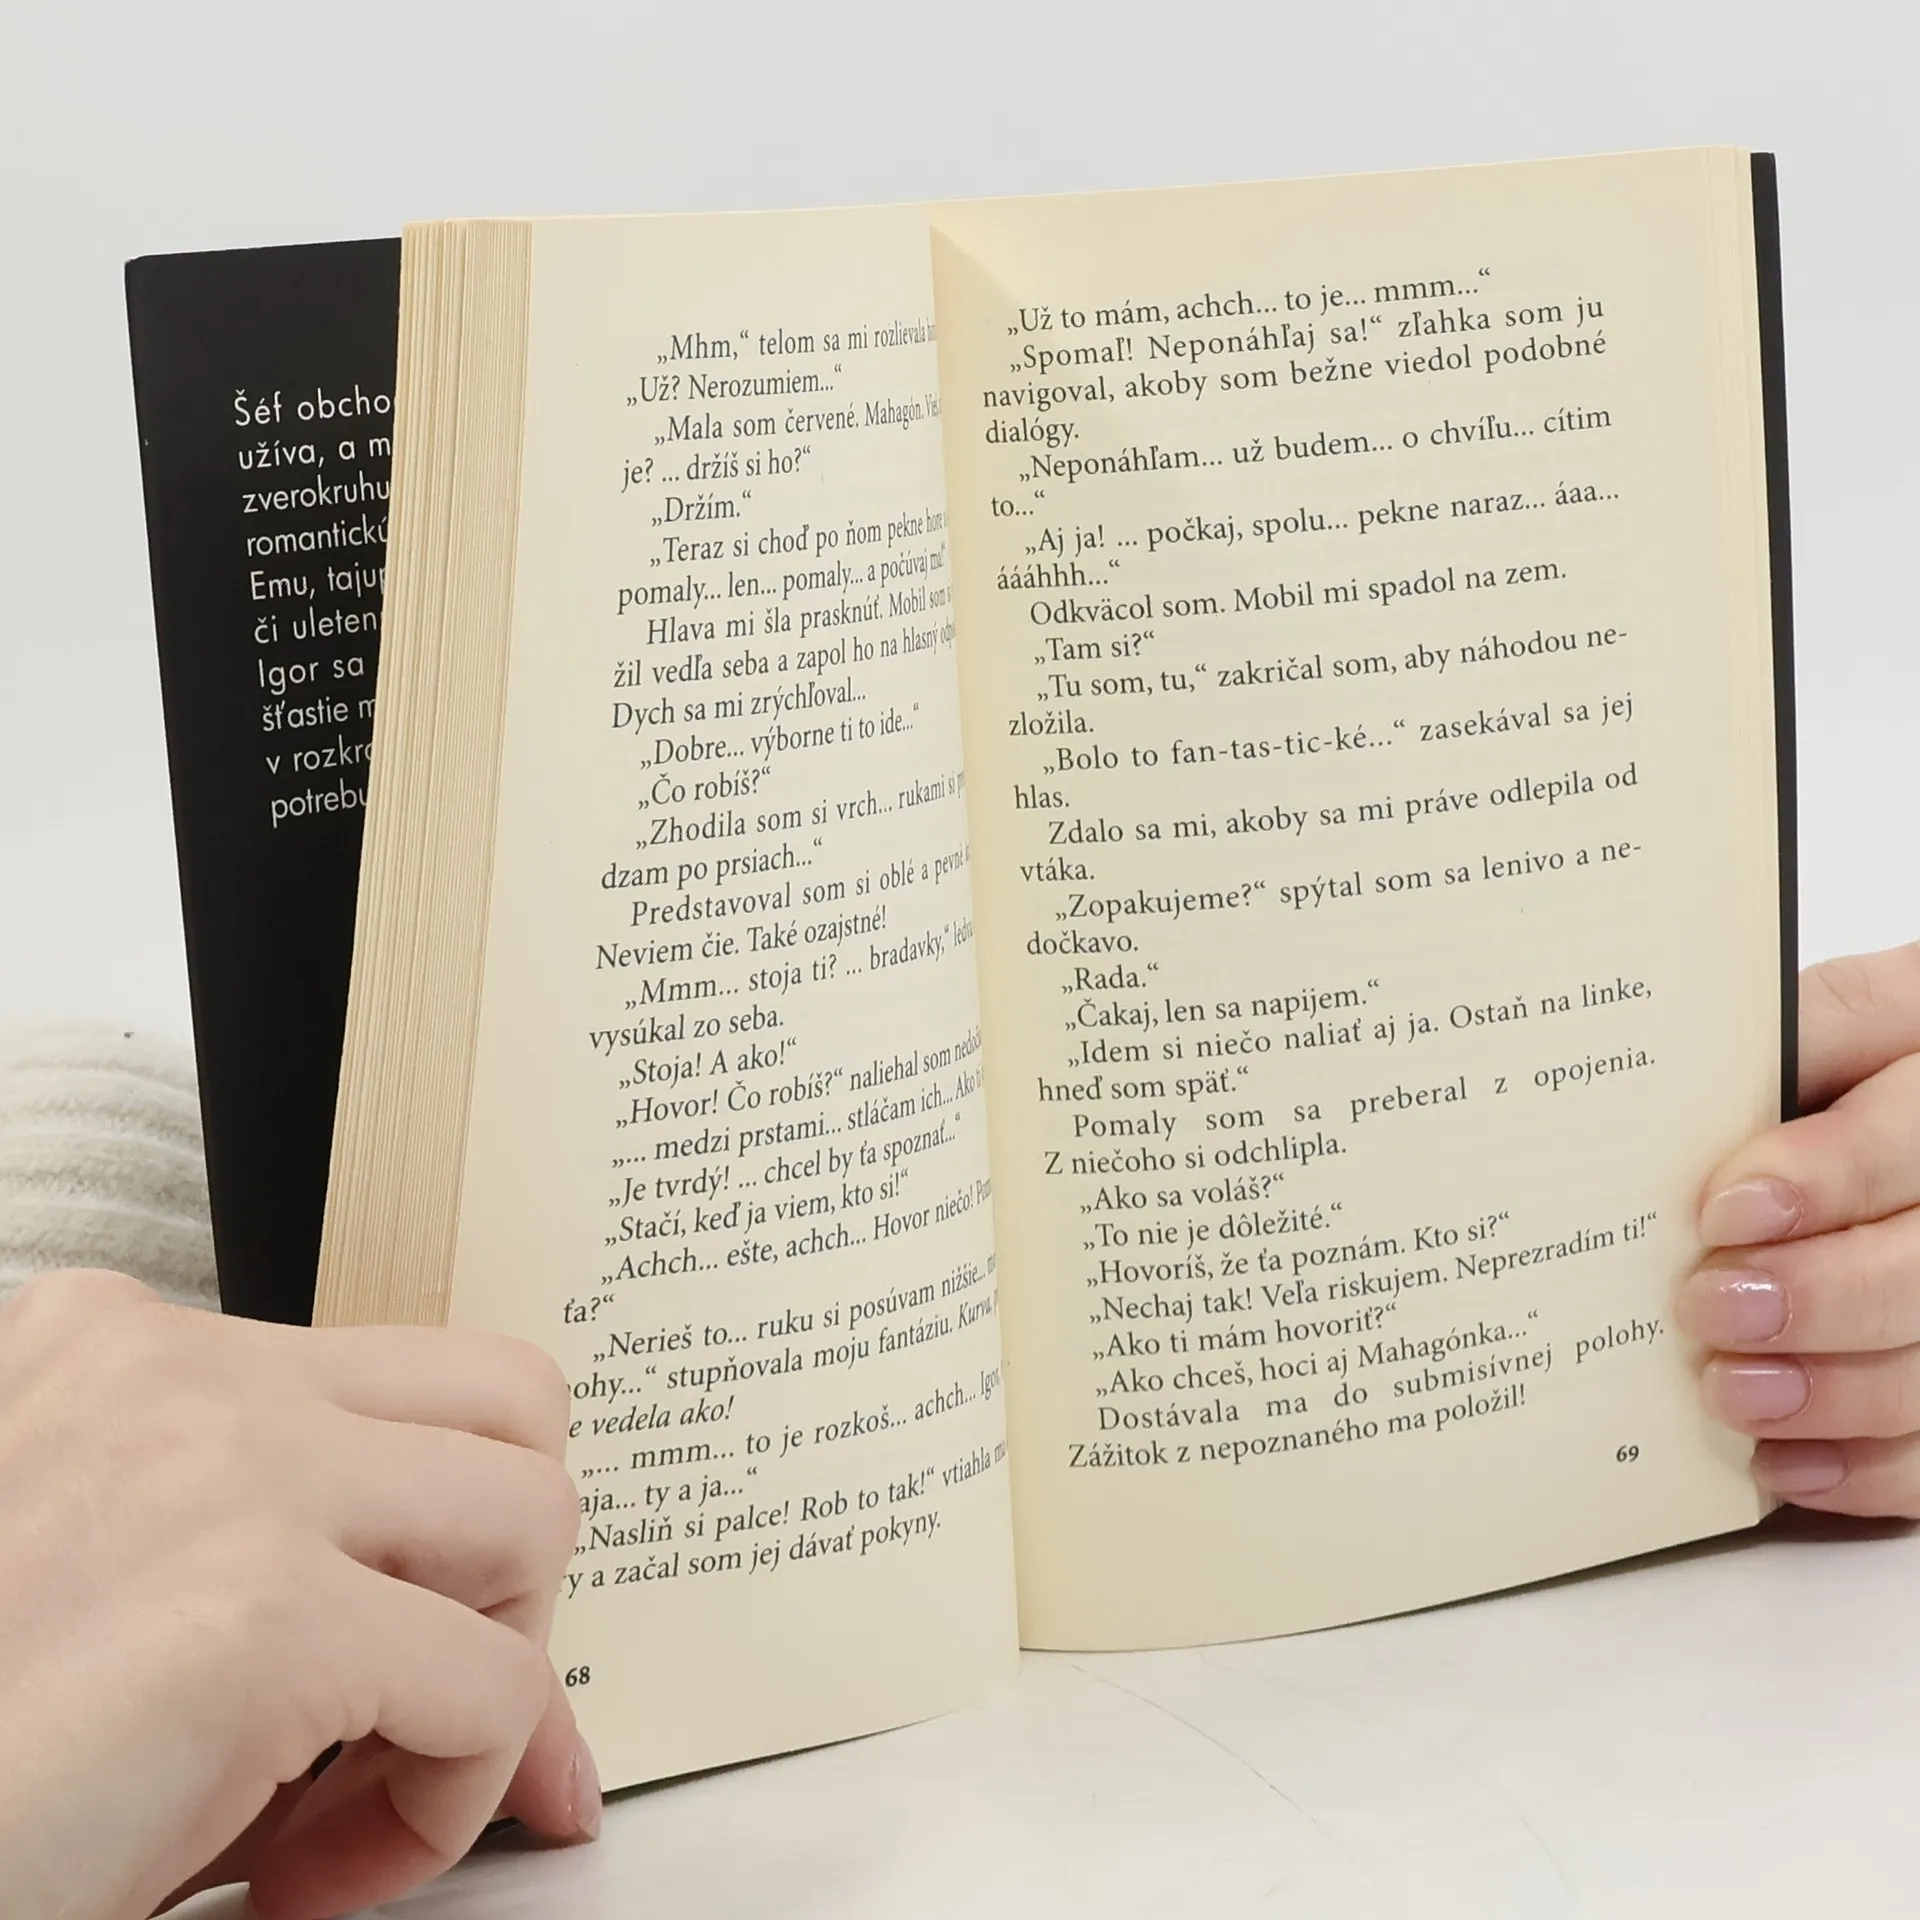 Šéf
užíva, a
zverokruhu
Emu,
či
Igor sa
šťastie
v
„Mhm,“ telom sa mi rozlievala
„Už? Nerozumiem...“
„Mala som červené. Mahagón.
je? ... držíš si ho?“
„Držím.“
„Teraz si choď po ňom pekne hore
pomaly... len... pomaly... a počúvaj ma!“
Hlava mi šla prasknúť. Mobil som
žil vedľa seba a zapol ho na hlasný
Dych sa mi zrýchľoval...
„Dobre... výborne ti to ide...“
„Čo robíš?“
„Zhodila som si vrch... rukami si
dzam po prsiach...“
Predstavoval som si oblé a pevné
Neviem čie. Také ozajstné!
„Mmm... stoja ti? ... bradavky,“
vysúkal zo seba.
„Stoja! A ako!“
„Hovor! Čo robíš?“ naliehal som
„... medzi prstami... stláčam ich... Ako
„Je tvrdý! ... chcel by ťa spoznať...“
„Stačí, keď ja viem, kto si!“
„Achch... ešte, achch... Hovor niečo!
ťa?“
„Nerieš to... ruku si posúvam nižšie...
ohy...“ stupňovala moju fantáziu. Kurva,
e vedela ako!
„... mmm... to je rozkoš... achch... Igor,
aja... ty a ja...“
„Nasliň si palce! Rob to tak!“ vtiahla ma
y a začal som jej dávať pokyny.
68
„Už to mám, achch... to je... mmm...“
„Spomaľ! Neponáhľaj sa!“ zľahka som ju
navigoval, akoby som bežne viedol podobné
dialógy.
„Neponáhľam... už budem... o chvíľu... cítim
to...“
„Aj ja! ... počkaj, spolu... pekne naraz... áaa...
áááhhh...“
Odkväcol som. Mobil mi spadol na zem.
„Tam si?“
„Tu som, tu,“ zakričal som, aby náhodou ne-
zložila.
„Bolo to fan-tas-tic-ké...“ zasekával sa jej
hlas.
Zdalo sa mi, akoby sa mi práve odlepila od
vtáka.
„Zopakujeme?“ spýtal som sa lenivo a ne-
dočkavo.
„Rada.“
„Čakaj, len sa napijem.“
„Idem si niečo naliať aj ja. Ostaň na linke,
hneď som späť.“
Pomaly som sa preberal z opojenia.
Z niečoho si odchlipla.
„Ako sa voláš?“
„To nie je dôležité.“
„Hovoríš, že ťa poznám. Kto si?“
„Nechaj tak! Veľa riskujem. Neprezradím ti!“
„Ako ti mám hovoriť?“
„Ako chceš, hoci aj Mahagónka...“
Dostávala ma do submisívnej polohy.
Zážitok z nepoznaného ma položil!
69